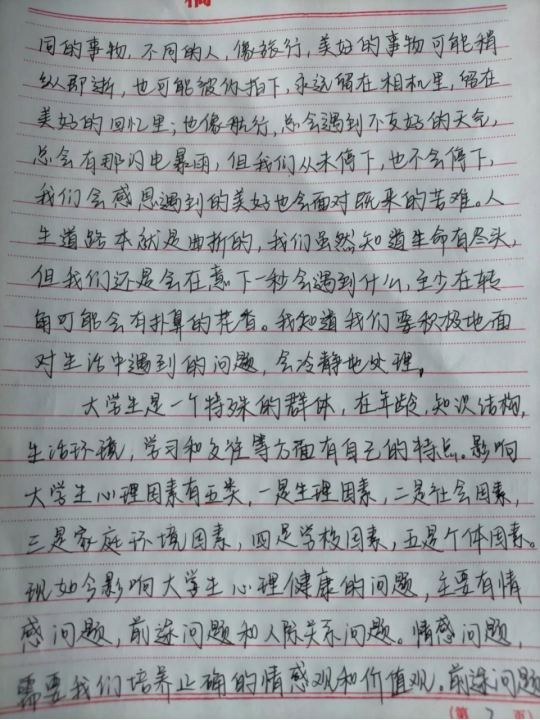 稿
同的事物，不同的人，像旅行，美好的事物可能稍
纵即逝，也可能被你拍下，永远留在相机里，留在
美好的回忆里；也像航行，总会遇到不友好的天气，
总会有那闪电暴雨，但我们从未停下，也不会停下，
我们会感恩遇到的美好也会面对既来的苦难。人
生道路本就是曲折的，我们虽然知道生命有尽头，
但我们还是会在意下一秒会遇到什么，至少在转
角可能会有扑鼻的花香。我知道我们要积极地面
对生活中遇到的问题，会冷静地处理。
大学生是一个特殊的群体，在年龄，知识结构，
生活环境，学习和交往等方面有自己的特点。影响
大学生心理因素有五类，一是生理因素，二是社会因素，
三是家庭环境因素，四是学校因素，五是个体因素。
现如今影响大学生心理健康的问题，主要有情
感问题，前途问题和人际关系问题。情感问题，
需要我们培养正确的情感观和价值观。前途问题
（第 2 页）